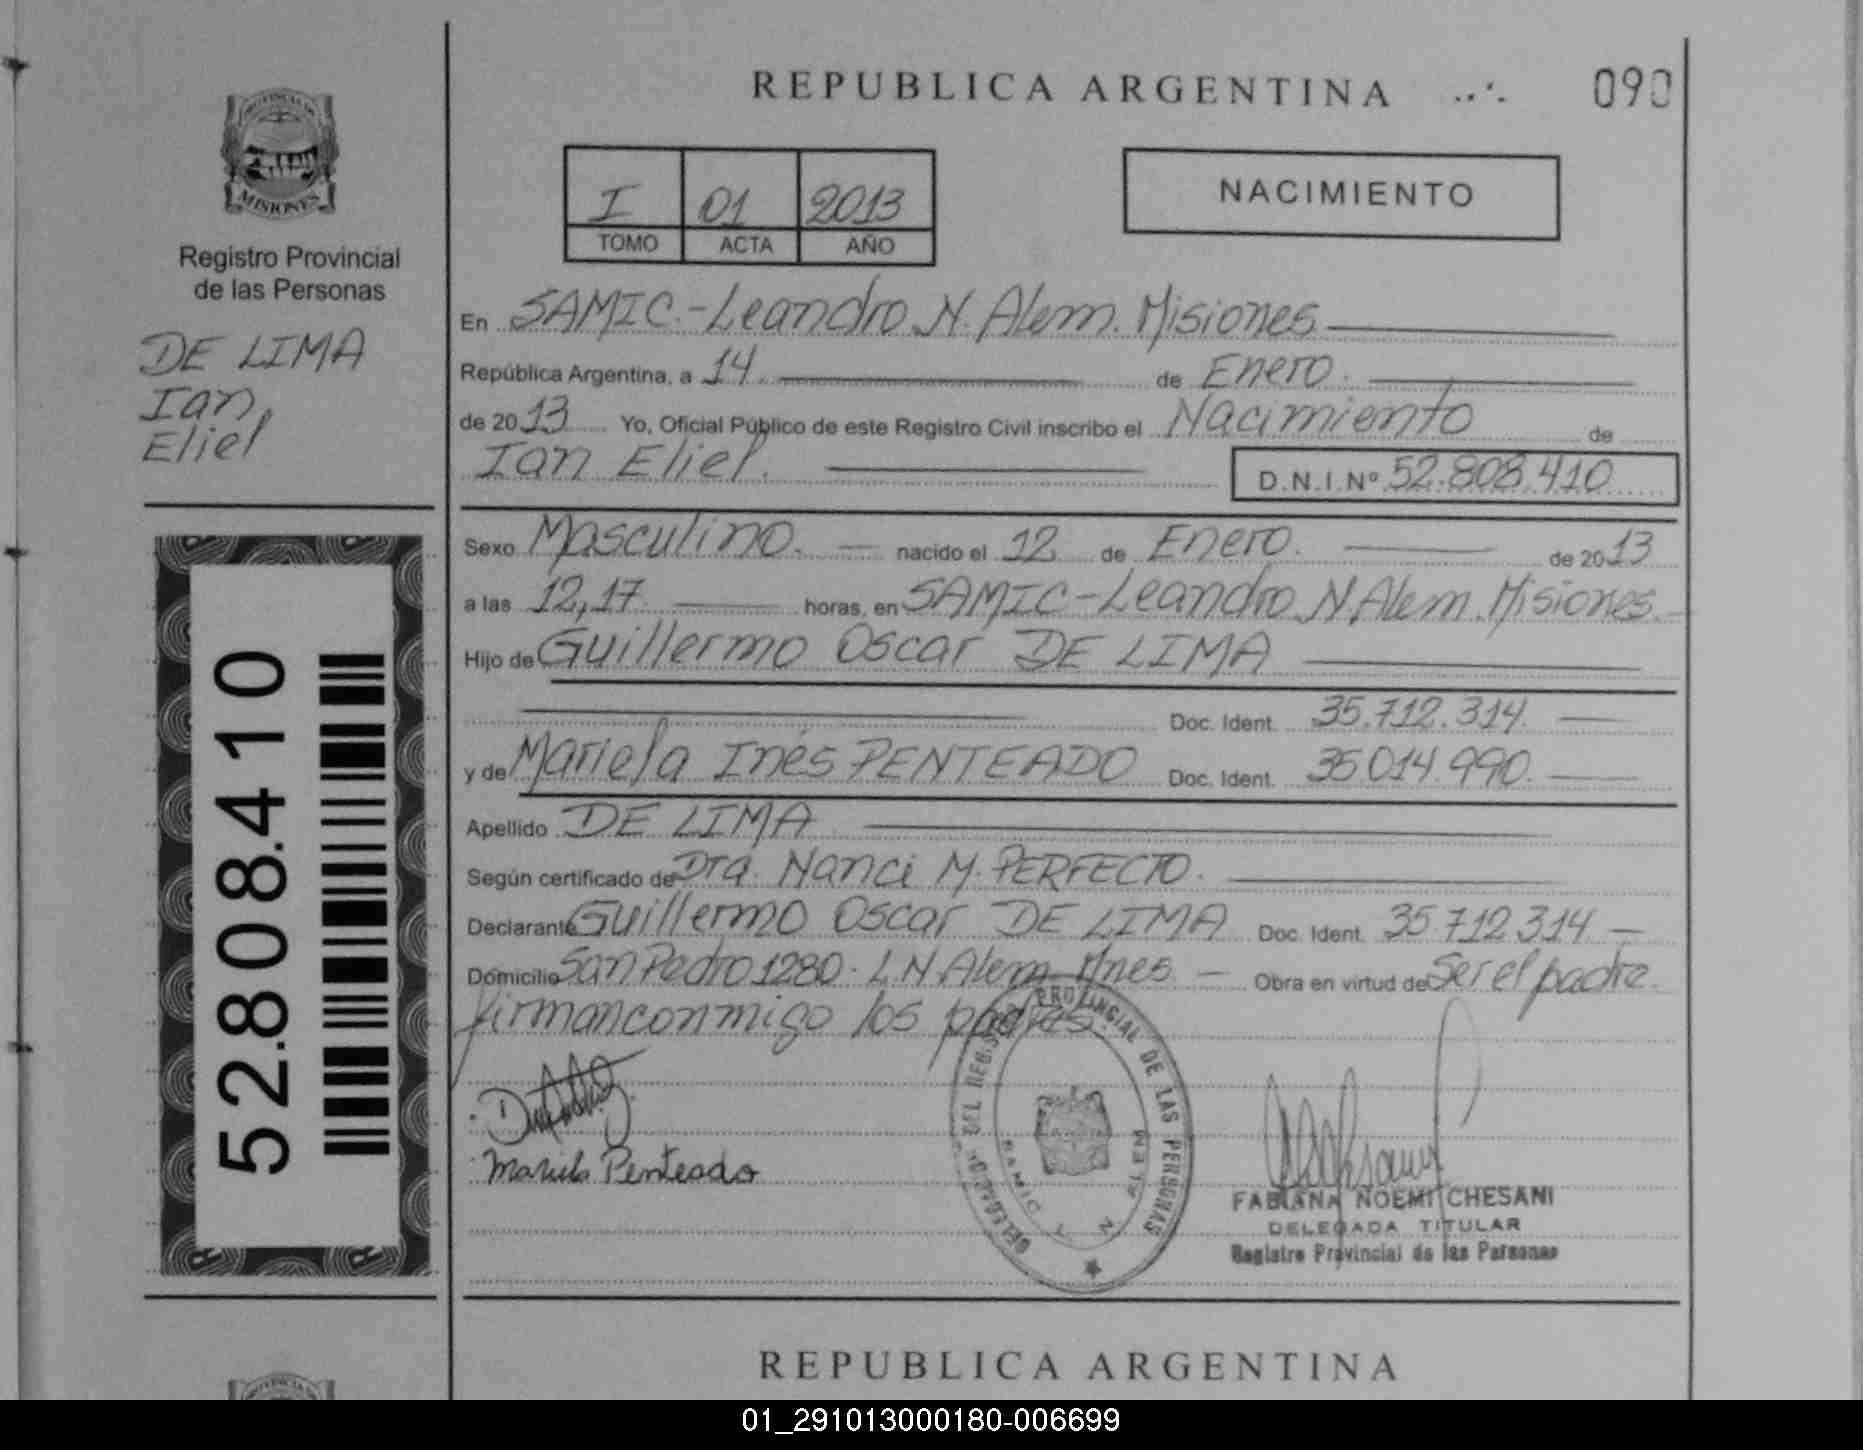 REPUBLICA ARGENTINA
090
PROVINCIA DE
MISIONES
Registro Provincial
de las Personas
DE LIMA
Ian
Eliel
52.808.410
I 01 2013
TOMO ACTA AÑO
NACIMIENTO
En SAMIC.-Leandro N. Alem. Misiones
República Argentina, a 14. de Enero.
de 2013 Yo, Oficial Público de este Registro Civil inscribo el Nacimiento de
Ian Eliel. D.N.I.Nº 52.808.410
Sexo Masculino. nacido el 12 de Enero. de 2013
a las 12,17 horas, en SAMIC-Leandro N.Alem.Misiones
Hijo de Guillermo Oscar DE LIMA
Doc. Ident. 35.712.314.
y de Mariela Inés PENTEADO Doc. Ident. 35014.990.
Apellido DE LIMA
Según certificado de Dra. Nanci M. PERFECTO.
Declarante Guillermo Oscar DE LIMA Doc. Ident. 35.712.314
Domicilio San Pedro 1280. L.N Alem Mnes. Obra en virtud de Ser el padre.
firman conmigo los padres.
Mariela Penteado
DELEGACION DEL REGISTRO PROVINCIAL DE LAS PERSONAS
SAMIC L N ALEM
FABIANA NOEMI CHESANI
DELEGADA TITULAR
Registro Provincial de las Personas
REPUBLICA ARGENTINA
01_291013000180-006699